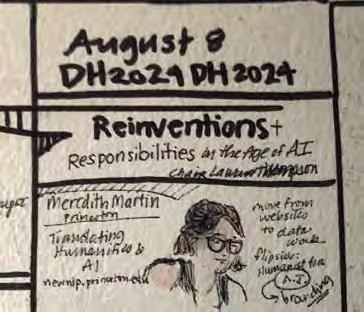 August 8
DH2024 DH2024
Reinventions +
Responsibilities in the Age of AI
Chair Lauren Thompson
Meredith Martin
Princeton
Translating
Humanities &
AI
newnlp.princeton.edu
move from
websites
to data
work
Flipside:
Humanist for
A.I.
branding